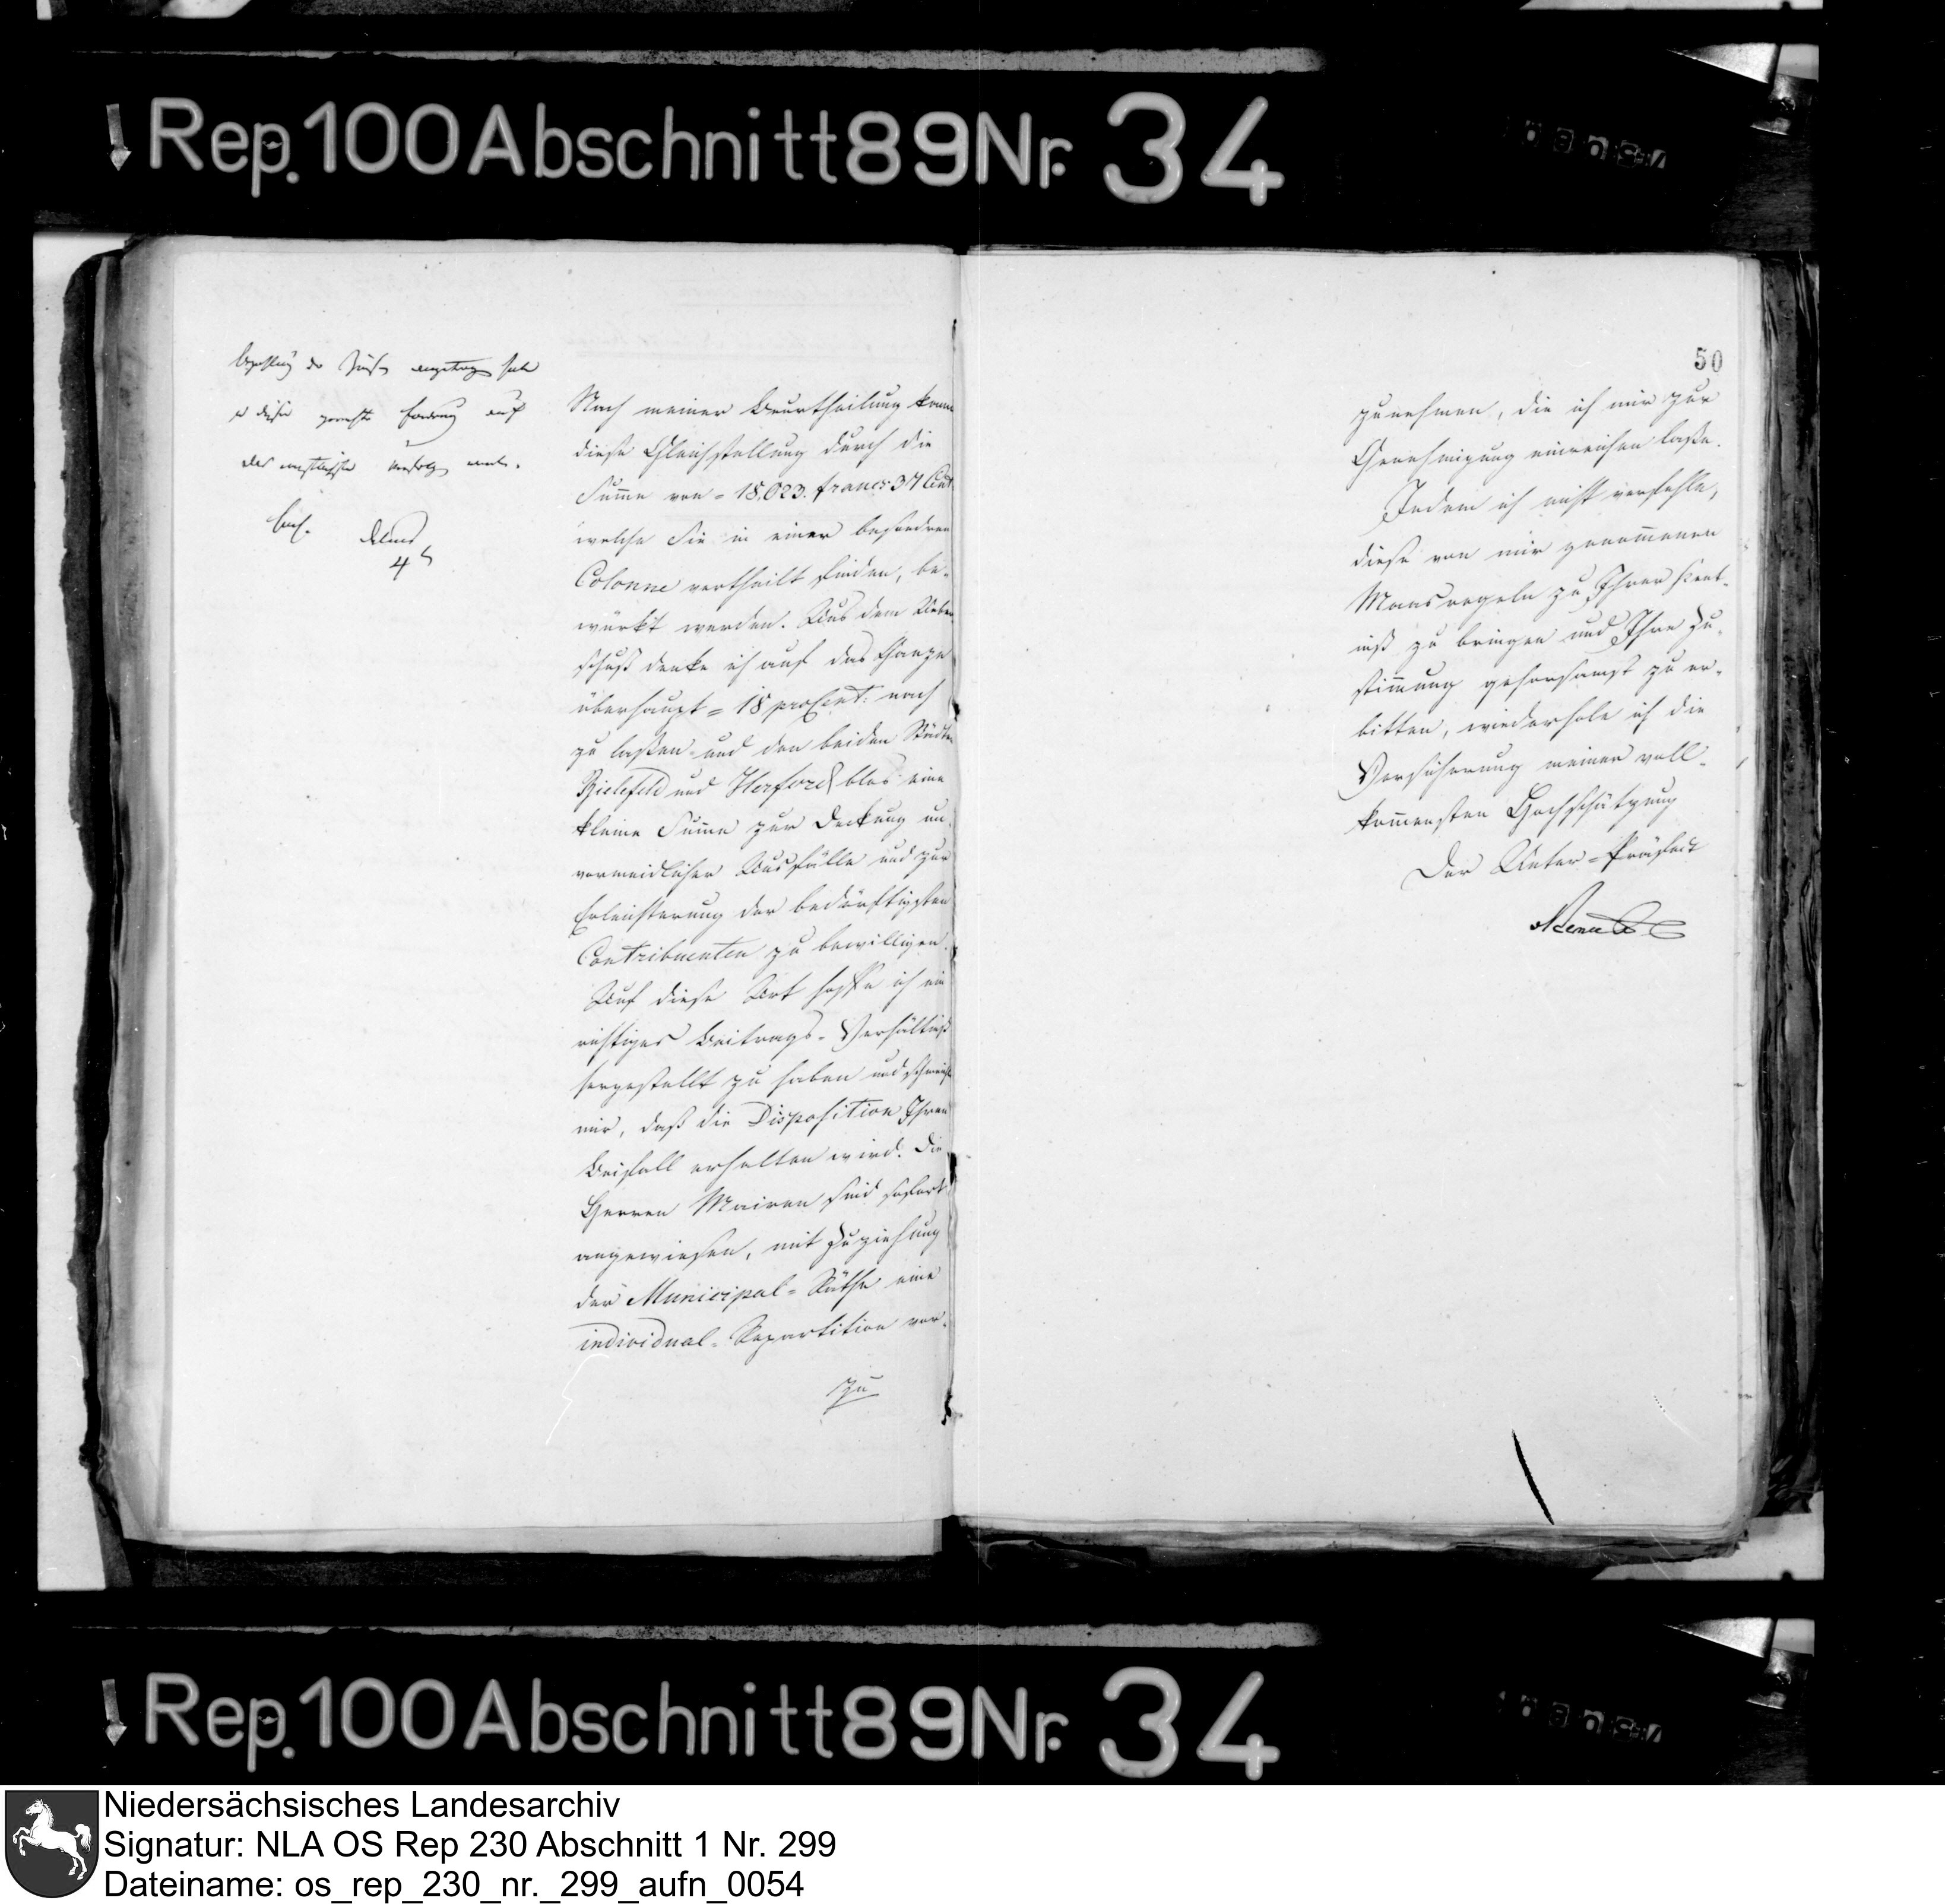 Rep. 100 Abschnitt 89 Nr. 34
der angetragen habe
diese gerechte Forderung auf
das
4
Nach meiner Beurtheilung kann
diese Gleichstellung durch die
Sum̅e von = 18,023. francs 37 Cent
welche Sie in einer besondren
Colonne vertheilt finden, be-
würkt werden. Aus dem Ueber-
schuß denke ich auf das Ganze
überhaupt = 18 proCent: nach
zu laßen und den beiden Städten
Bielefeld und Herford blos eine
kleine Sum̅e zur Deckung un-
vermeidlicher Ausfälle und zur
Erleichterung der bedürftigsten
Contribuenten zu bewilligen.
Auf diese Art hoffe ich ein
richtiges Beitrags-Verhältniß
hergestellt zu haben und schmeichle
mir, daß die Disposition Ihren
Beifall erhalten wird. Die
Herren Mairen sind sofort
angewiesen, mit Zuziehung
der Municipal-Räthe eine
individual-Repartition vor-
zu
50
zunehmen, die ich mir zur
Genehmigung einreichen laße.
Indem ich nicht verfehle,
diese von mir genom̅enen
Maasregeln zu Ihrer Kent-
niß zu bringen und Ihre Zu-
stim̅ung gehorsamst zu er-
bitten, wiederhole ich die
Versicherung meiner voll-
kom̅ensten Hochschätzung
Der Unter-Präfect
Rep. 100 Abschnitt 89 Nr. 34
Niedersächsisches Landesarchiv
Signatur: NLA OS Rep 230 Abschnitt 1 Nr. 299
Dateiname: os_rep_230_nr._299_aufn_0054